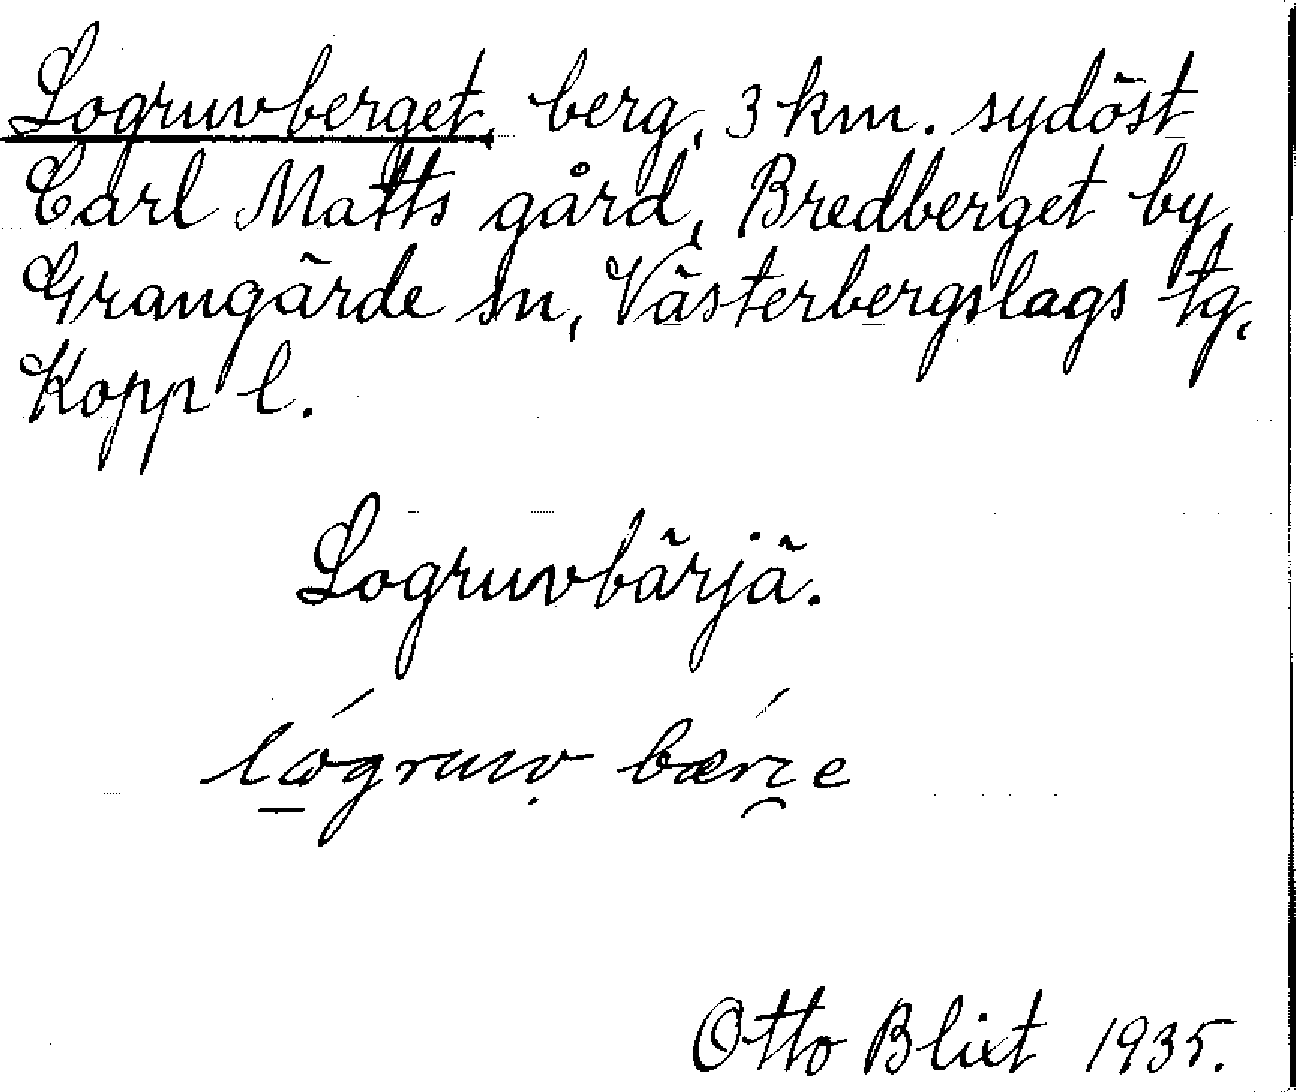 Logruvberget, berg, 3 km. sydöst
Carl Matts gård, Bredberget by,
Grangärde sn, Västerbergslags tg,
Kopp l.
Logruvbärjä.
Otto Blixt 1935.